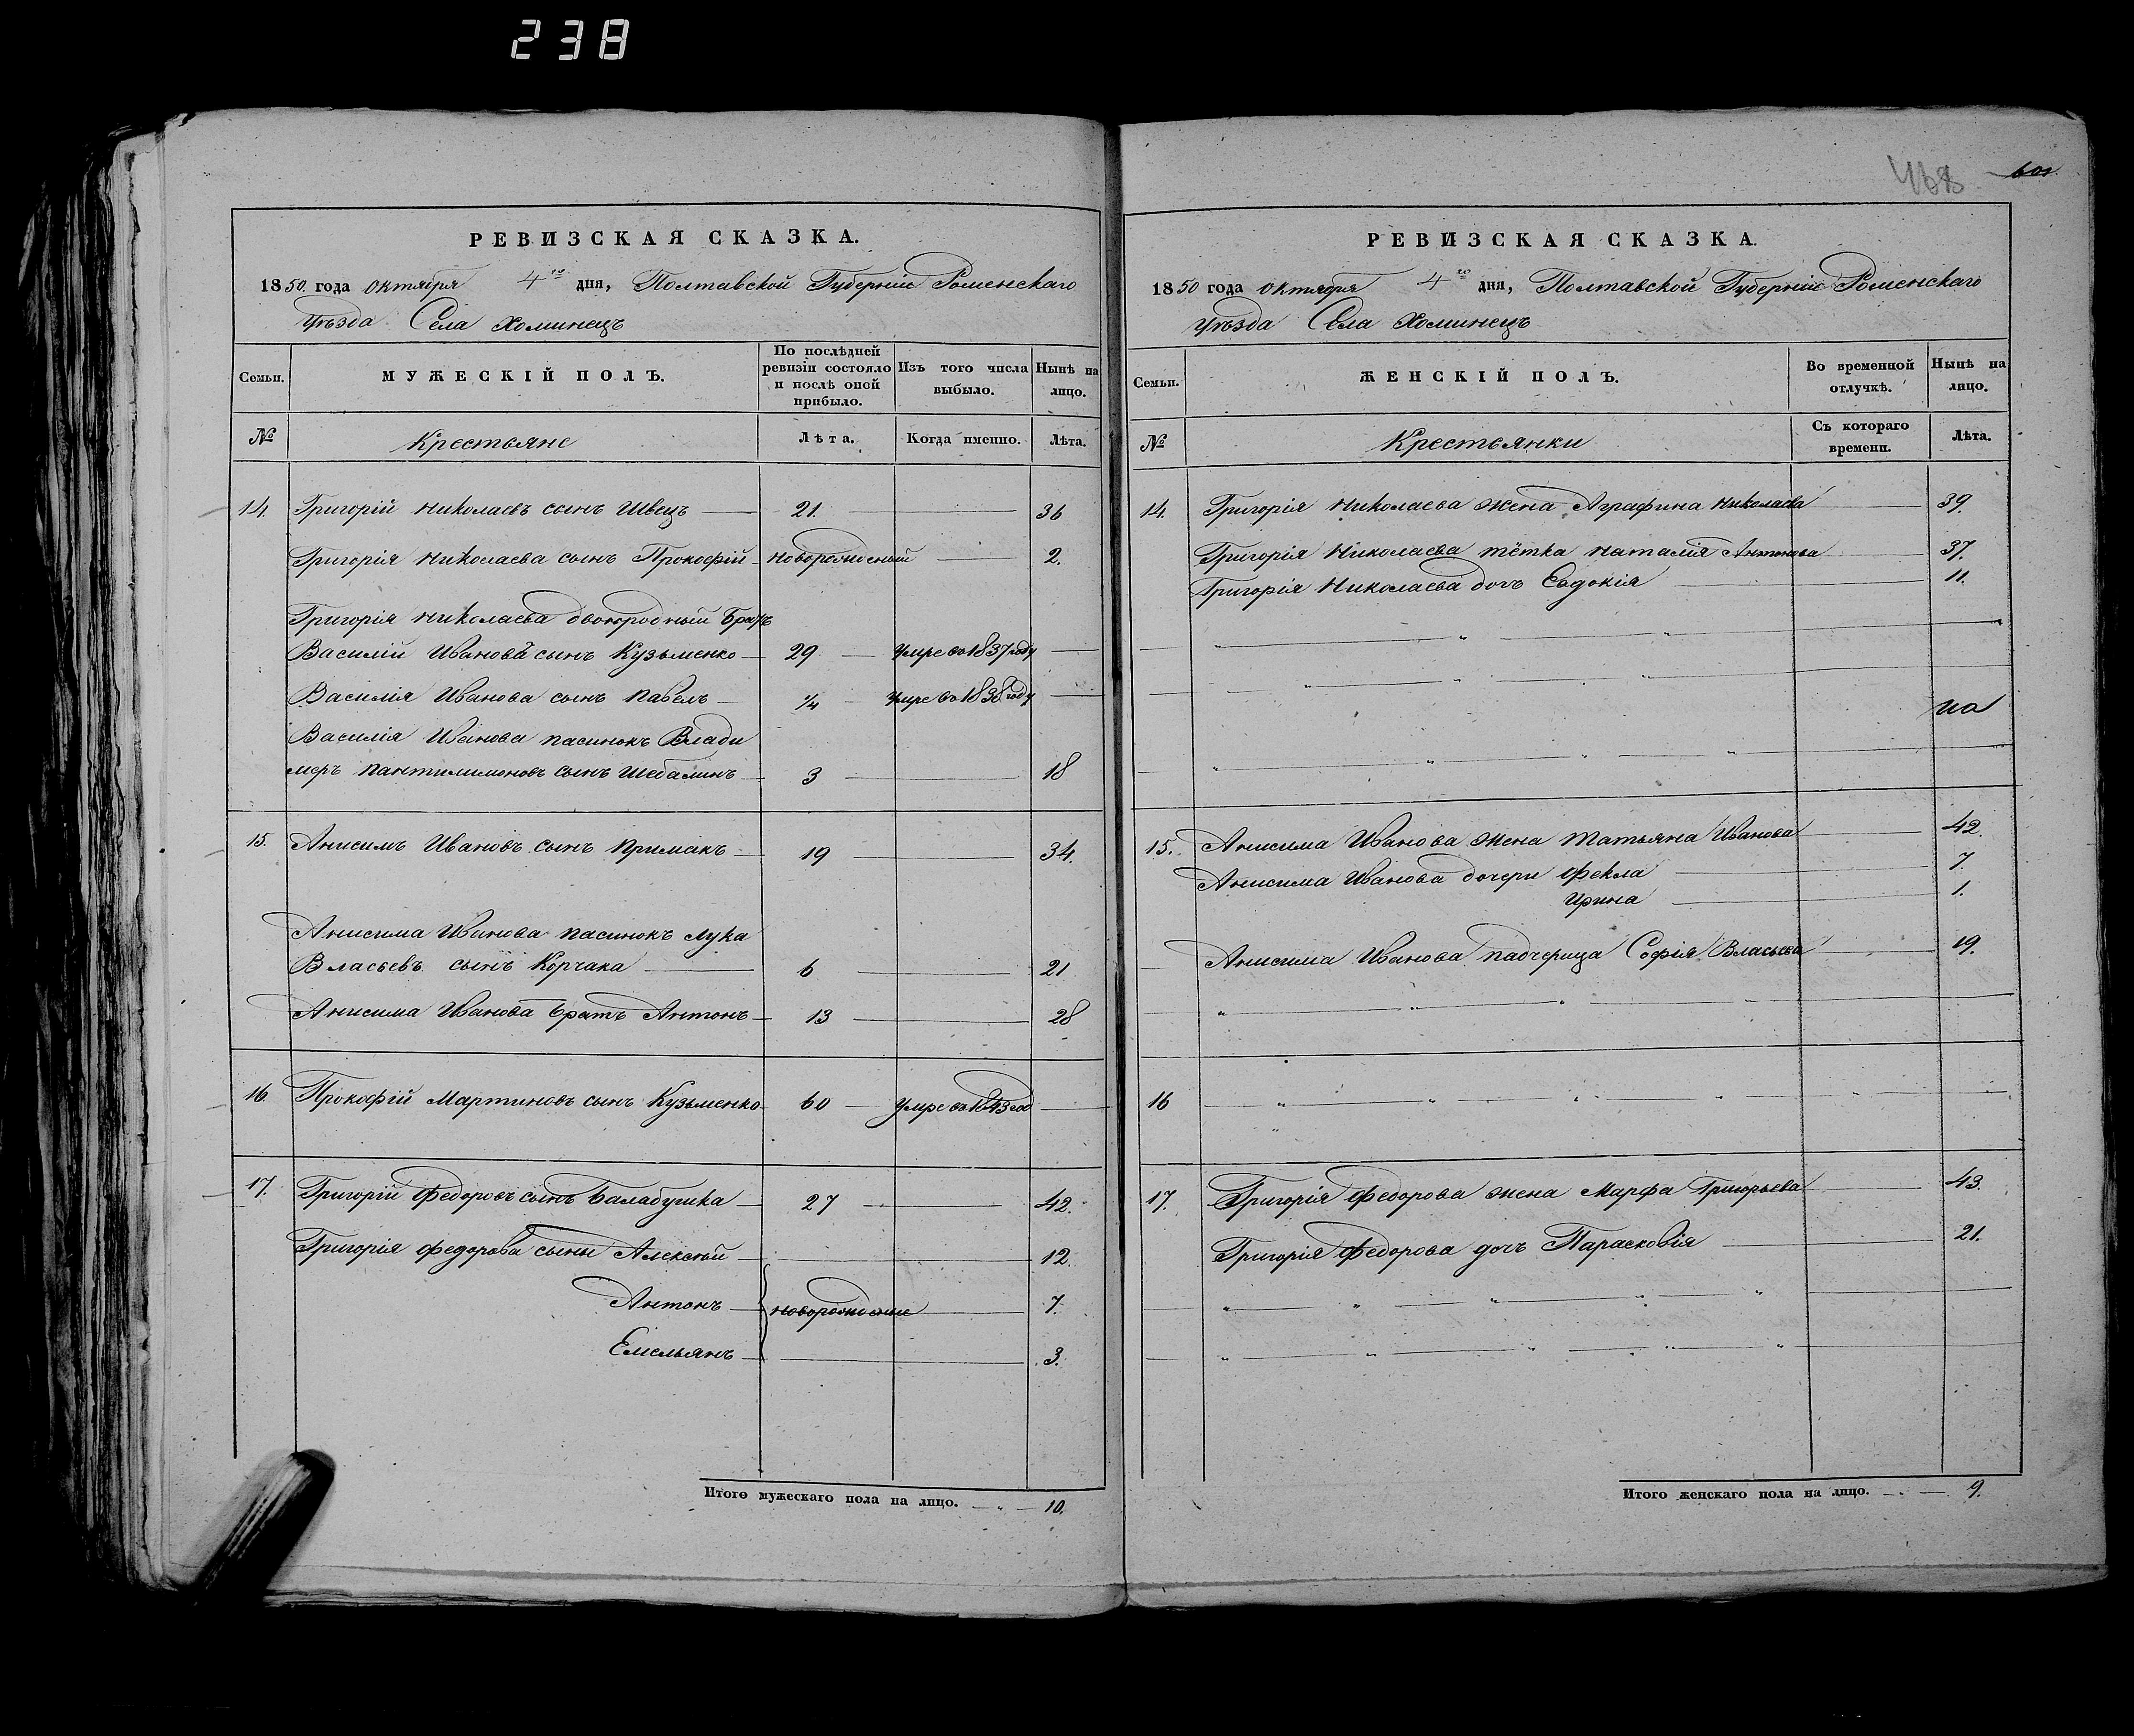 238
РЕВИЗСКАЯ СКАЗКА.
1850. года Октября 4го дня, Полтавской Губерніи Роменскаго
Уѣзда Села Хоминецъ
Семьи. МУЖЕСКІЙ ПОЛЪ. По послѣдней ревизіи состояло и послѣ оной прибыло. Изъ того числа выбыло. Нынѣ на лицо.
№ Крестьяне Лѣта. Когда именно. Лѣта.
14. Григорій Николаевъ сынъ Швецъ — 21. — 36
Григорія Николаева сынъ Прокофій новорожденый — 2.
Григорія Николаева двоюродный братъ
Василий Иванова сынъ Кузьменко — 29 — умре во 1837 году —
Василія Иванова сынъ Павелъ — 1/4 — умре во 1838 году —
Василія Иванова пасинокъ Влади
меръ Пантилимоновъ сынъ Шебалинъ — 3 — 18
15. Анисимъ Ивановъ сынъ Примакъ — 19 — 34.
Анисима Иванова пасинокъ Лука
Власьевъ сынъ Корчака — 6 — 21
Анисима Иванова братъ Антонъ — 13 — 28
16. Прокофій Мартиновъ сынъ Кузьменко 60 — умре въ 1843 год —
17. Григорій Федоровъ сынъ Балабушка — 27 — 42.
Григорія Федорова сыны Алексѣй — 12.
Антонъ — новорожденые — 7.
Емельянъ — 3.
Итого мужескаго пола на лицо. — „ — 10.
468 601
РЕВИЗСКАЯ СКАЗКА.
1850 года Октября 4го дня, Полтавской Губерніи Роменскаго
Уѣзда Села Хоминецъ
Семьи. ЖЕНСКІЙ ПОЛЪ. Во временной отлучкѣ. Нынѣ на лицо.
№ Крестьянки Съ котораго времени. Лѣта.
14. Григорія Николаева жена Аграфина Николаева — 39.
Григорія Николаева тётка Наталія Антонова — 37.
Григорія Николаева дочь Евдокія — 11.
на
15. Анисима Иванова жена Татьяна Иванова — 42.
Анисима Иванова дочери Фекла — 7.
Ирина — 1.
Анисима Иванова падчерица Софія Власьева — 19.
16
17. Григорія Федорова жена Марфа Григорьева — 43.
Григорія Федорова дочь Парасковія — 21.
Итого женскаго пола на лицо. — „ — 9.